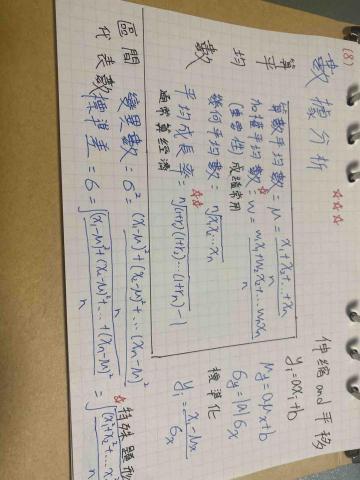 (8)
數據分析 ☆☆☆
算術平均數=μ=x₁+x₂+...+xₙ/n
加權平均數=W=w₁x₁+w₂x₂+...wₙxₙ/n
(重要性) 成績常用
幾何平均數:ⁿ√x₁x₂...xₙ
平均成長率=ⁿ√(1+r₁)(1+r₂)...(1+rₙ)-1
通常算經濟
變異數=σ²=(x₁-μ)²+(x₂-μ)²+...(xₙ-μ)²/n
標準差=σ=√(x₁-μ)²+(x₂-μ)²+...+(xₙ-μ)²/n
伸縮and平移
yᵢ=axᵢ+b
μy=aμx+b
σy=|a|σx
標準化
yᵢ=xᵢ-μx/σx
特殊題